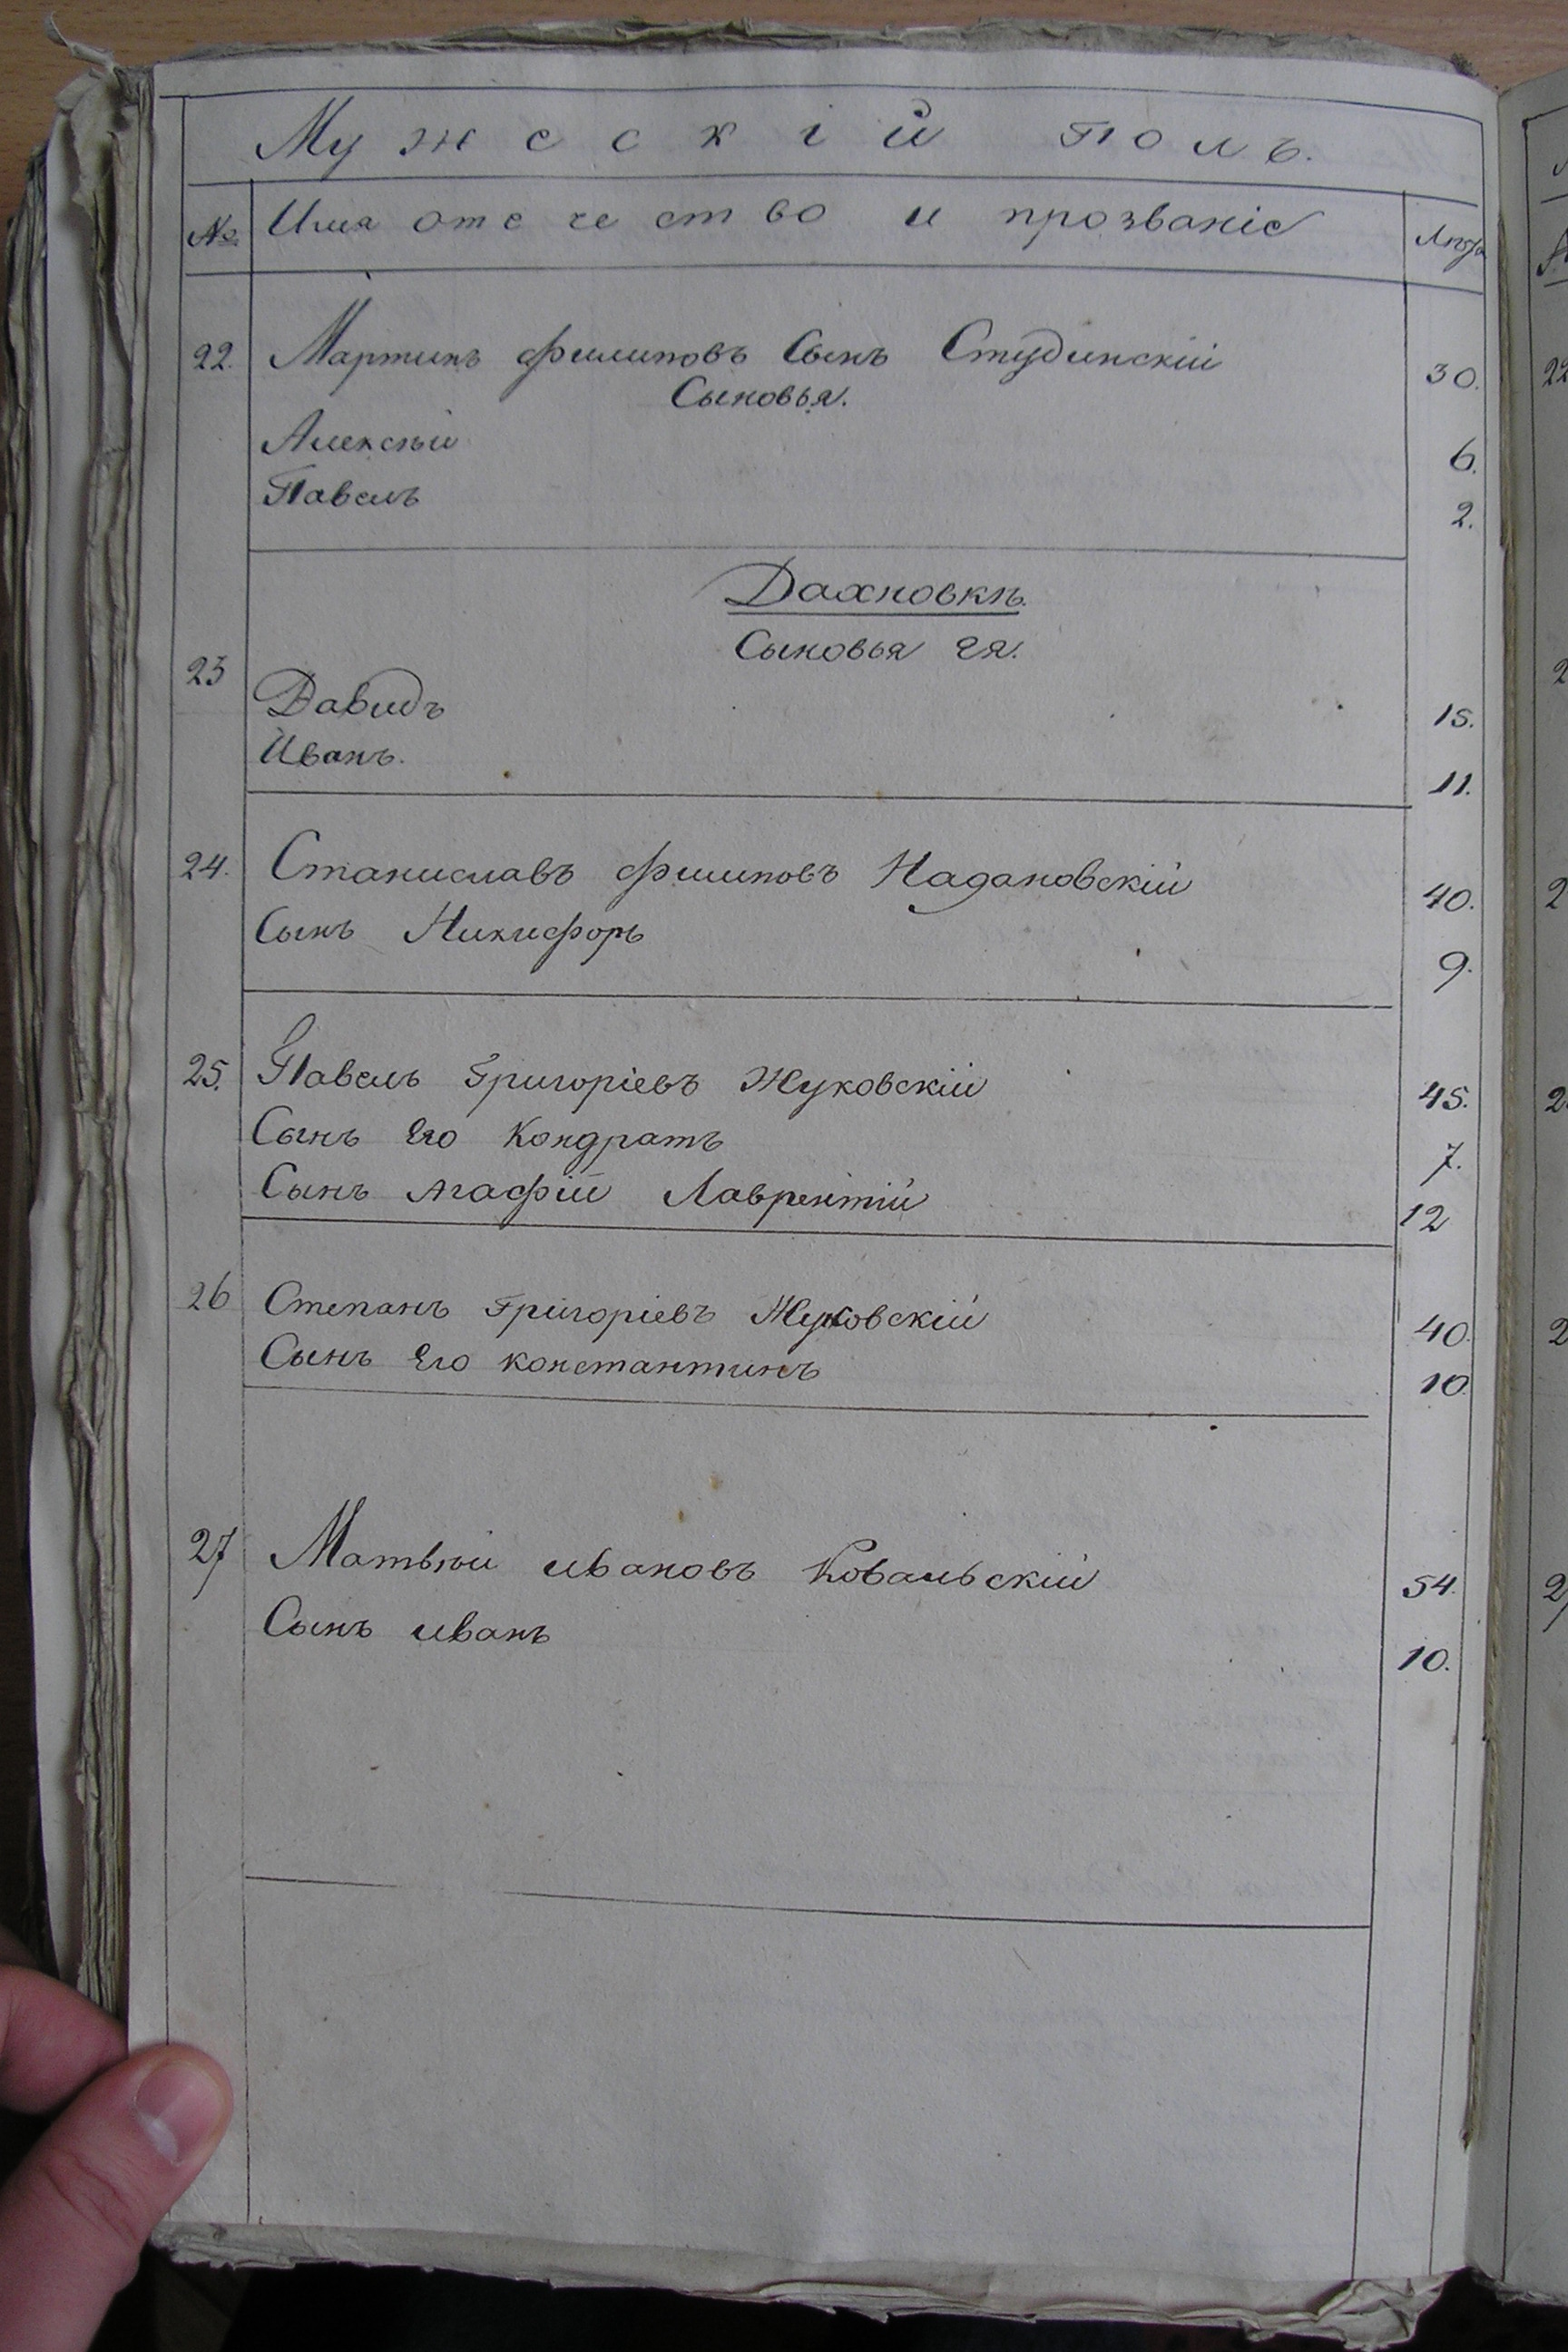 Мужескій полъ.
№ Имя отечество и прозваніе Лѣта
22. Мартинъ филиповъ Сынъ Студинскій 30.
Сыновья.
Алексѣй 6.
Павелъ 2.
Дахновкѣ.
Сыновья ея.
23 Давидъ 15.
Иванъ. 11.
24. Станиславъ филиповъ Надановскій 40.
Сынъ Никифоръ 9.
25. Павелъ Григоріевъ Жуковскій 45.
Сынъ Его Кондратъ 7.
Сынъ Агафіи Лаврентій 12
26 Степанъ Григоріевъ Жуковскій 40.
Сынъ Его константинъ 10.
27 Матвѣй ивановъ Ковальскій 54.
Сынъ иванъ 10.
22
2
2
2
2
2